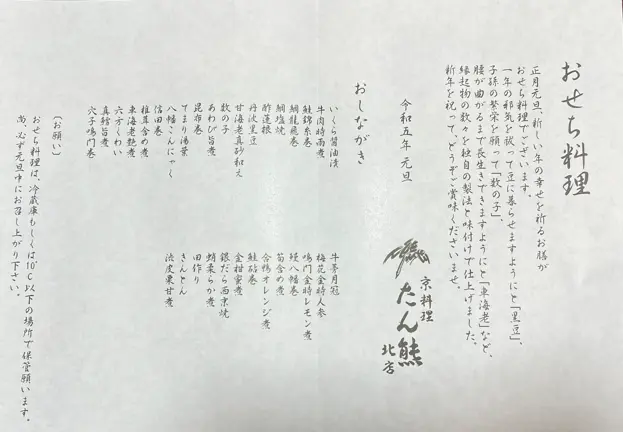 おせち料理
正月元旦、新しい年の幸せを祈るお膳が
おせち料理でございます。
一年の邪気を祓って豆に暮らせますようにと「黒豆」、
子孫の繁栄を願って「数の子」、
腰が曲がるまで長生きできますようにと「車海老」など、
縁起物の数々を独自の製法と味付けで仕上げました。
新年を祝って、どうぞご賞味くださいませ。
令和五年 元旦
京料理
たん熊
北店
おしながき
いくら醤油漬
牛肉時雨煮
鮭錦糸巻
鯛龍飛巻
鯛塩焼
酢蓮根
丹波黒豆
甘海老真砂和え
数の子
あわび旨煮
昆布巻
てまり湯葉
八幡こんにゃく
信田巻
椎茸含め煮
車海老艶煮
六方くわい
真鱈旨煮
穴子鳴門巻
牛蒡月冠
梅花金時人参
鳴門金時レモン煮
鰻八幡巻
筍含め煮
合鴨オレンジ煮
鮭砧巻
金柑蜜煮
銀だら西京焼
蛸柔らか煮
田作り
きんとん
渋皮栗甘煮
〔お願い〕
おせち料理は、冷蔵庫もしくは10℃以下の場所で保管願います。
尚、必ず元旦中にお召し上がり下さい。